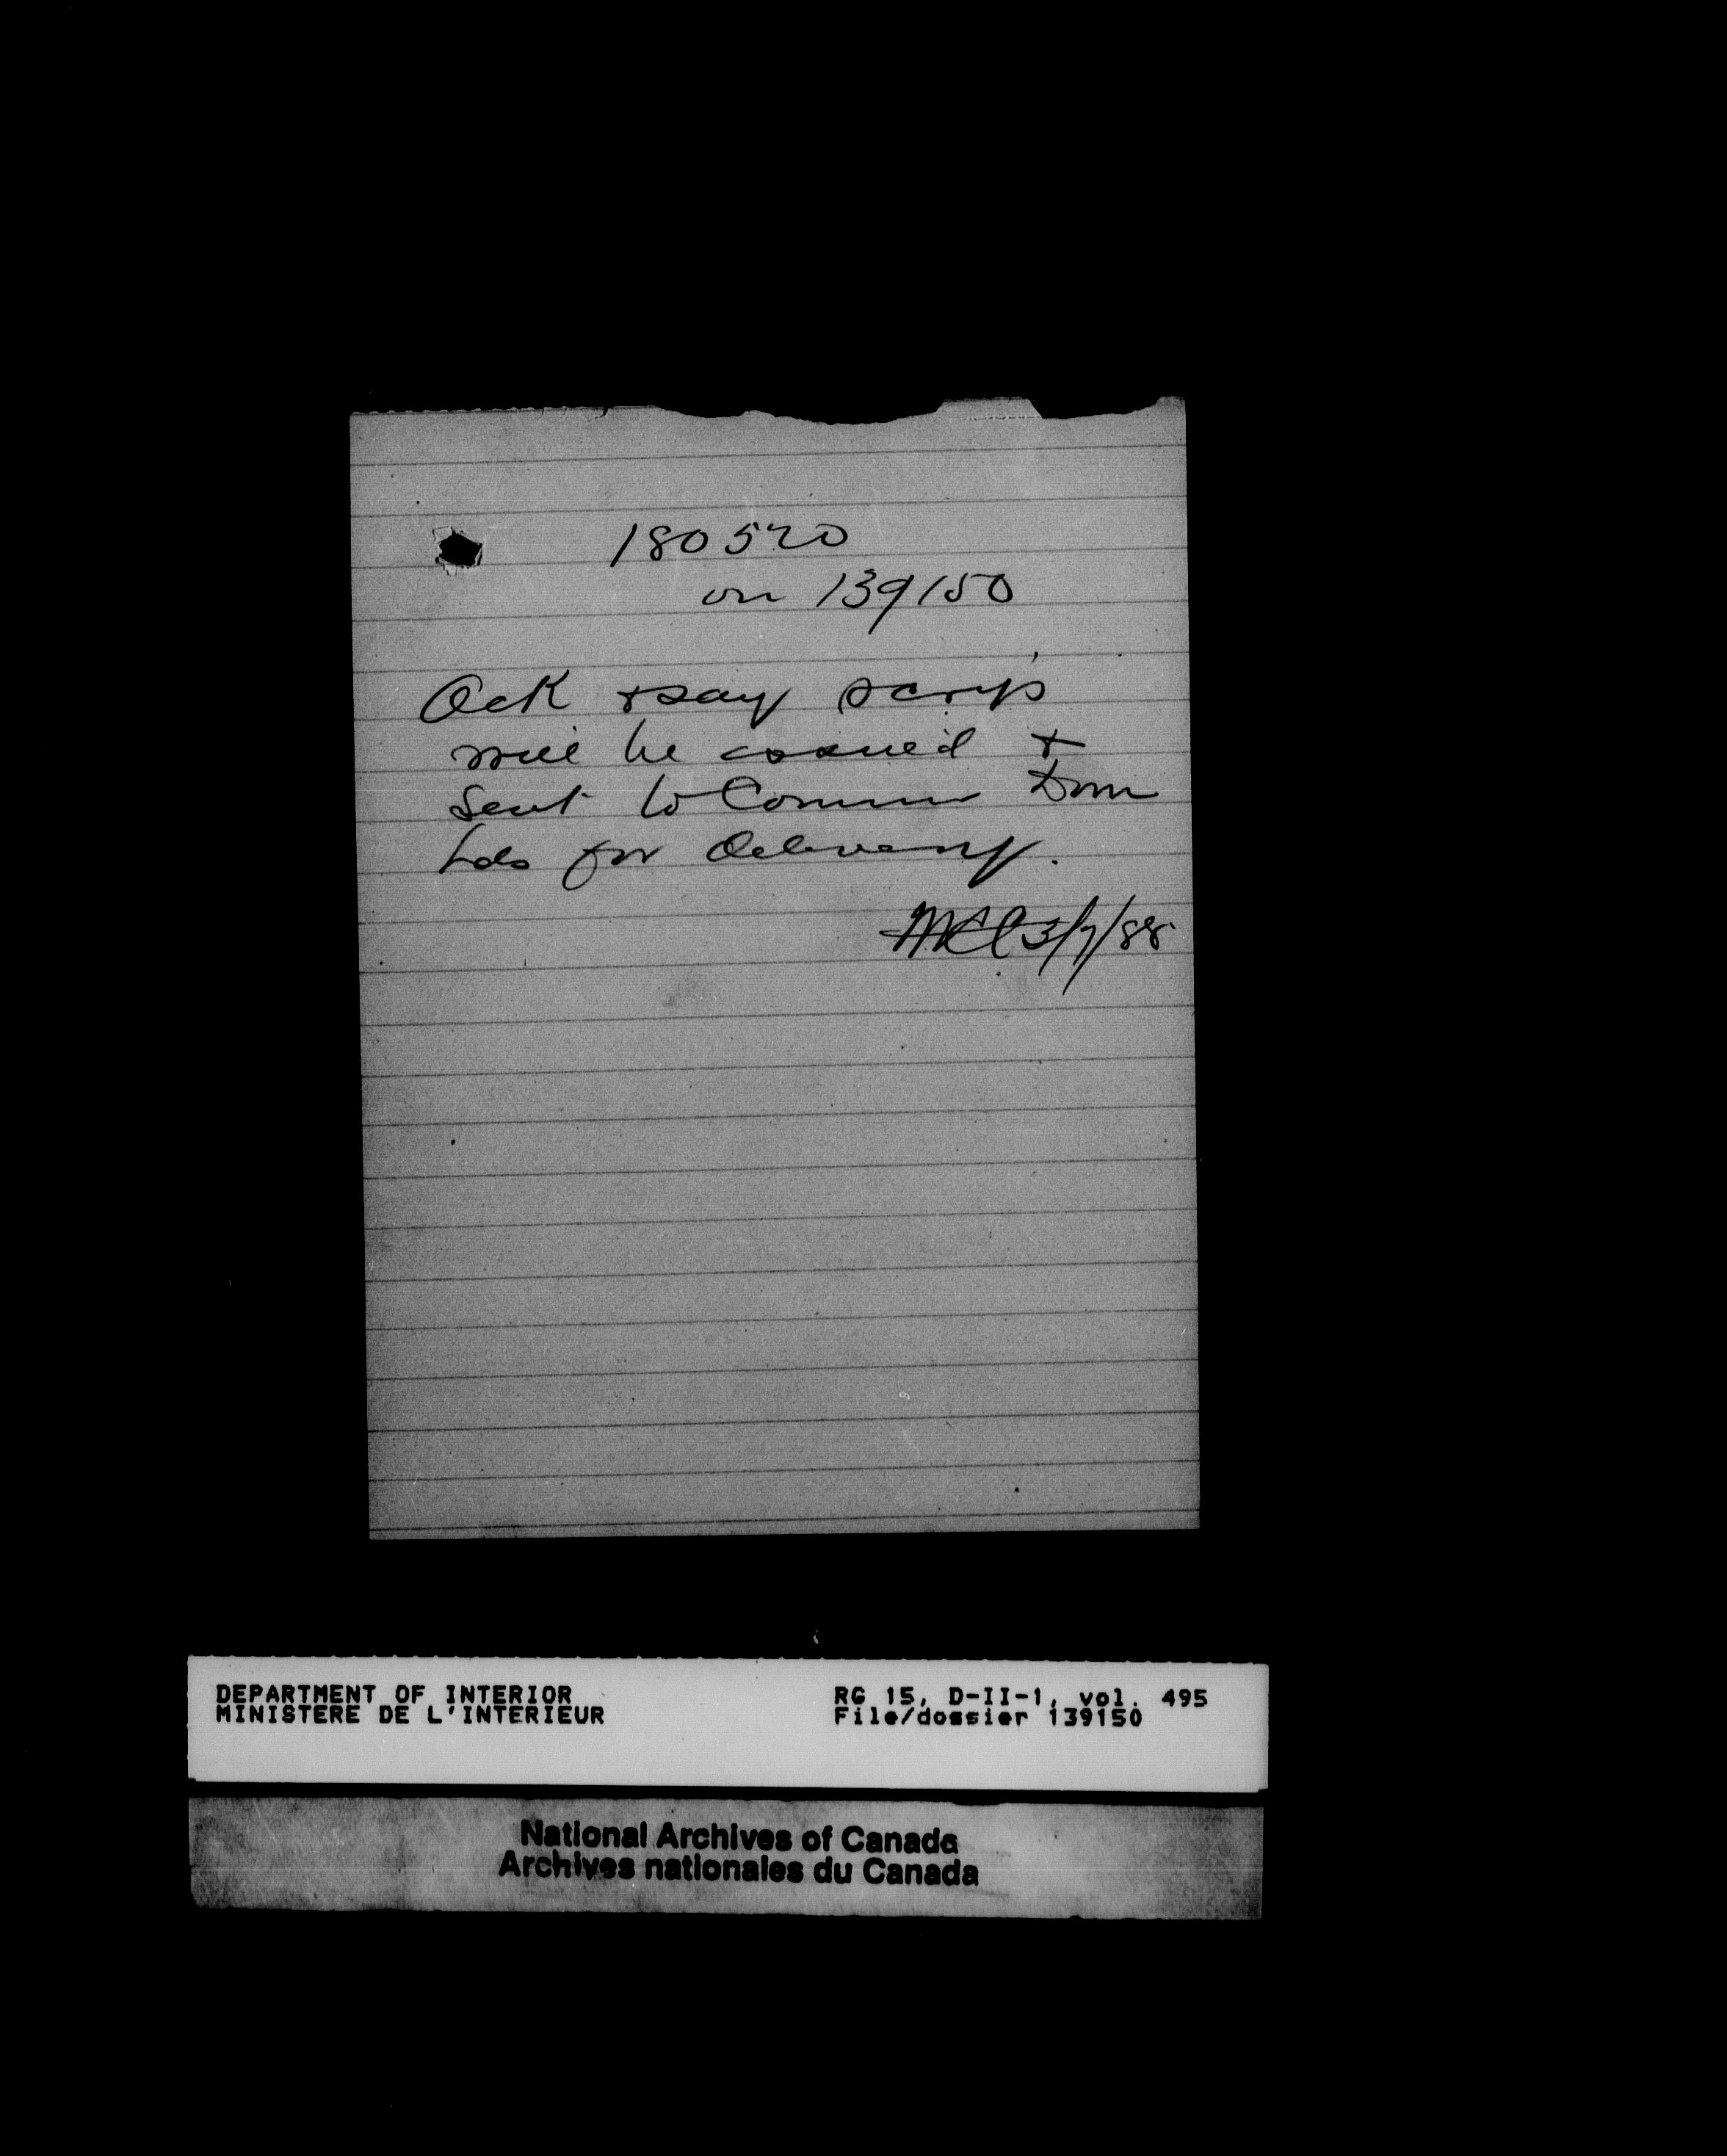 180520
on 139150
Ack & say scrip
will be issued &
sent to Commr Dom
Lds for delivery.
3/7/88
DEPARTMENT OF INTERIOR
MINISTERE DE L'INTERIEUR
RG 15, D-II-1, vol. 495
File/dossier 139150
National Archives of Canada
Archives nationales du Canada